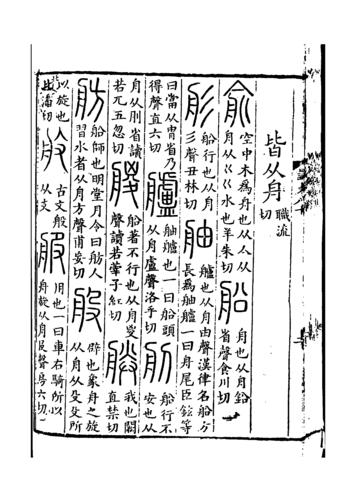 皆从舟職流切
俞空中木爲舟也从亼从舟从巜巜水也羊朱切船舟也从舟鉛省聲食川切
彤船行也从舟彡聲丑林切舳艫也从舟由聲漢律名船方長爲舳艫一曰舟尾臣鉉等
曰當从胄省乃得聲直六切艫舳艫也一曰船頭从舟盧聲洛乎切舠船行不安也从
舟从刖省讀若兀五忽切艐船著不行也从舟㚇聲讀若䔋子紅切朕我也闕直禁切
舫船師也明堂月令曰舫人習水者从舟方聲甫妄切般辟也象舟之旋从舟从殳殳所
以旋也北潘切古文般从支服用也一曰車右騎所以舟旋从舟𠬝聲房六切